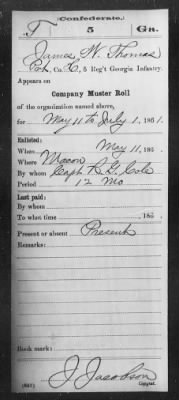 Confederate.
T 5 Ga.
James W. Thomas
Co. , 5 Reg't Georgia Infantry.
Appears on
Company Muster Roll
of the organization named above,
for May 11 to July 1, 1861.
Enlisted:
When May 11, 186 .
Where Macon
By whom Capt
Period 12 Mo
Last paid:
By whom
To what time , 186 .
Present or absent Present
Remarks:
Book mark:
J. Jacobson
(642) Copyist.